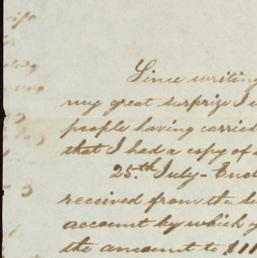 Since writing
my great surprize I
people having carried
that I had a copy of
25th July - End
received from the
account by which y
the amount to $11